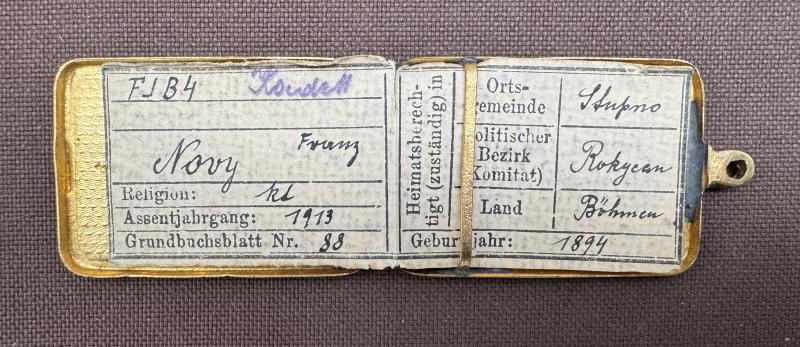 FJB4
Novy Franz
Religion: kt
Assentjahrgang: 1913
Grundbuchsblatt Nr. 88
Heimatsberech-
tigt (zuständig) in
Orts-
emeinde Stupno
olitischer
Bezirk
Komitat) Rokycan
Land Böhmen
Geburtjahr: 1894